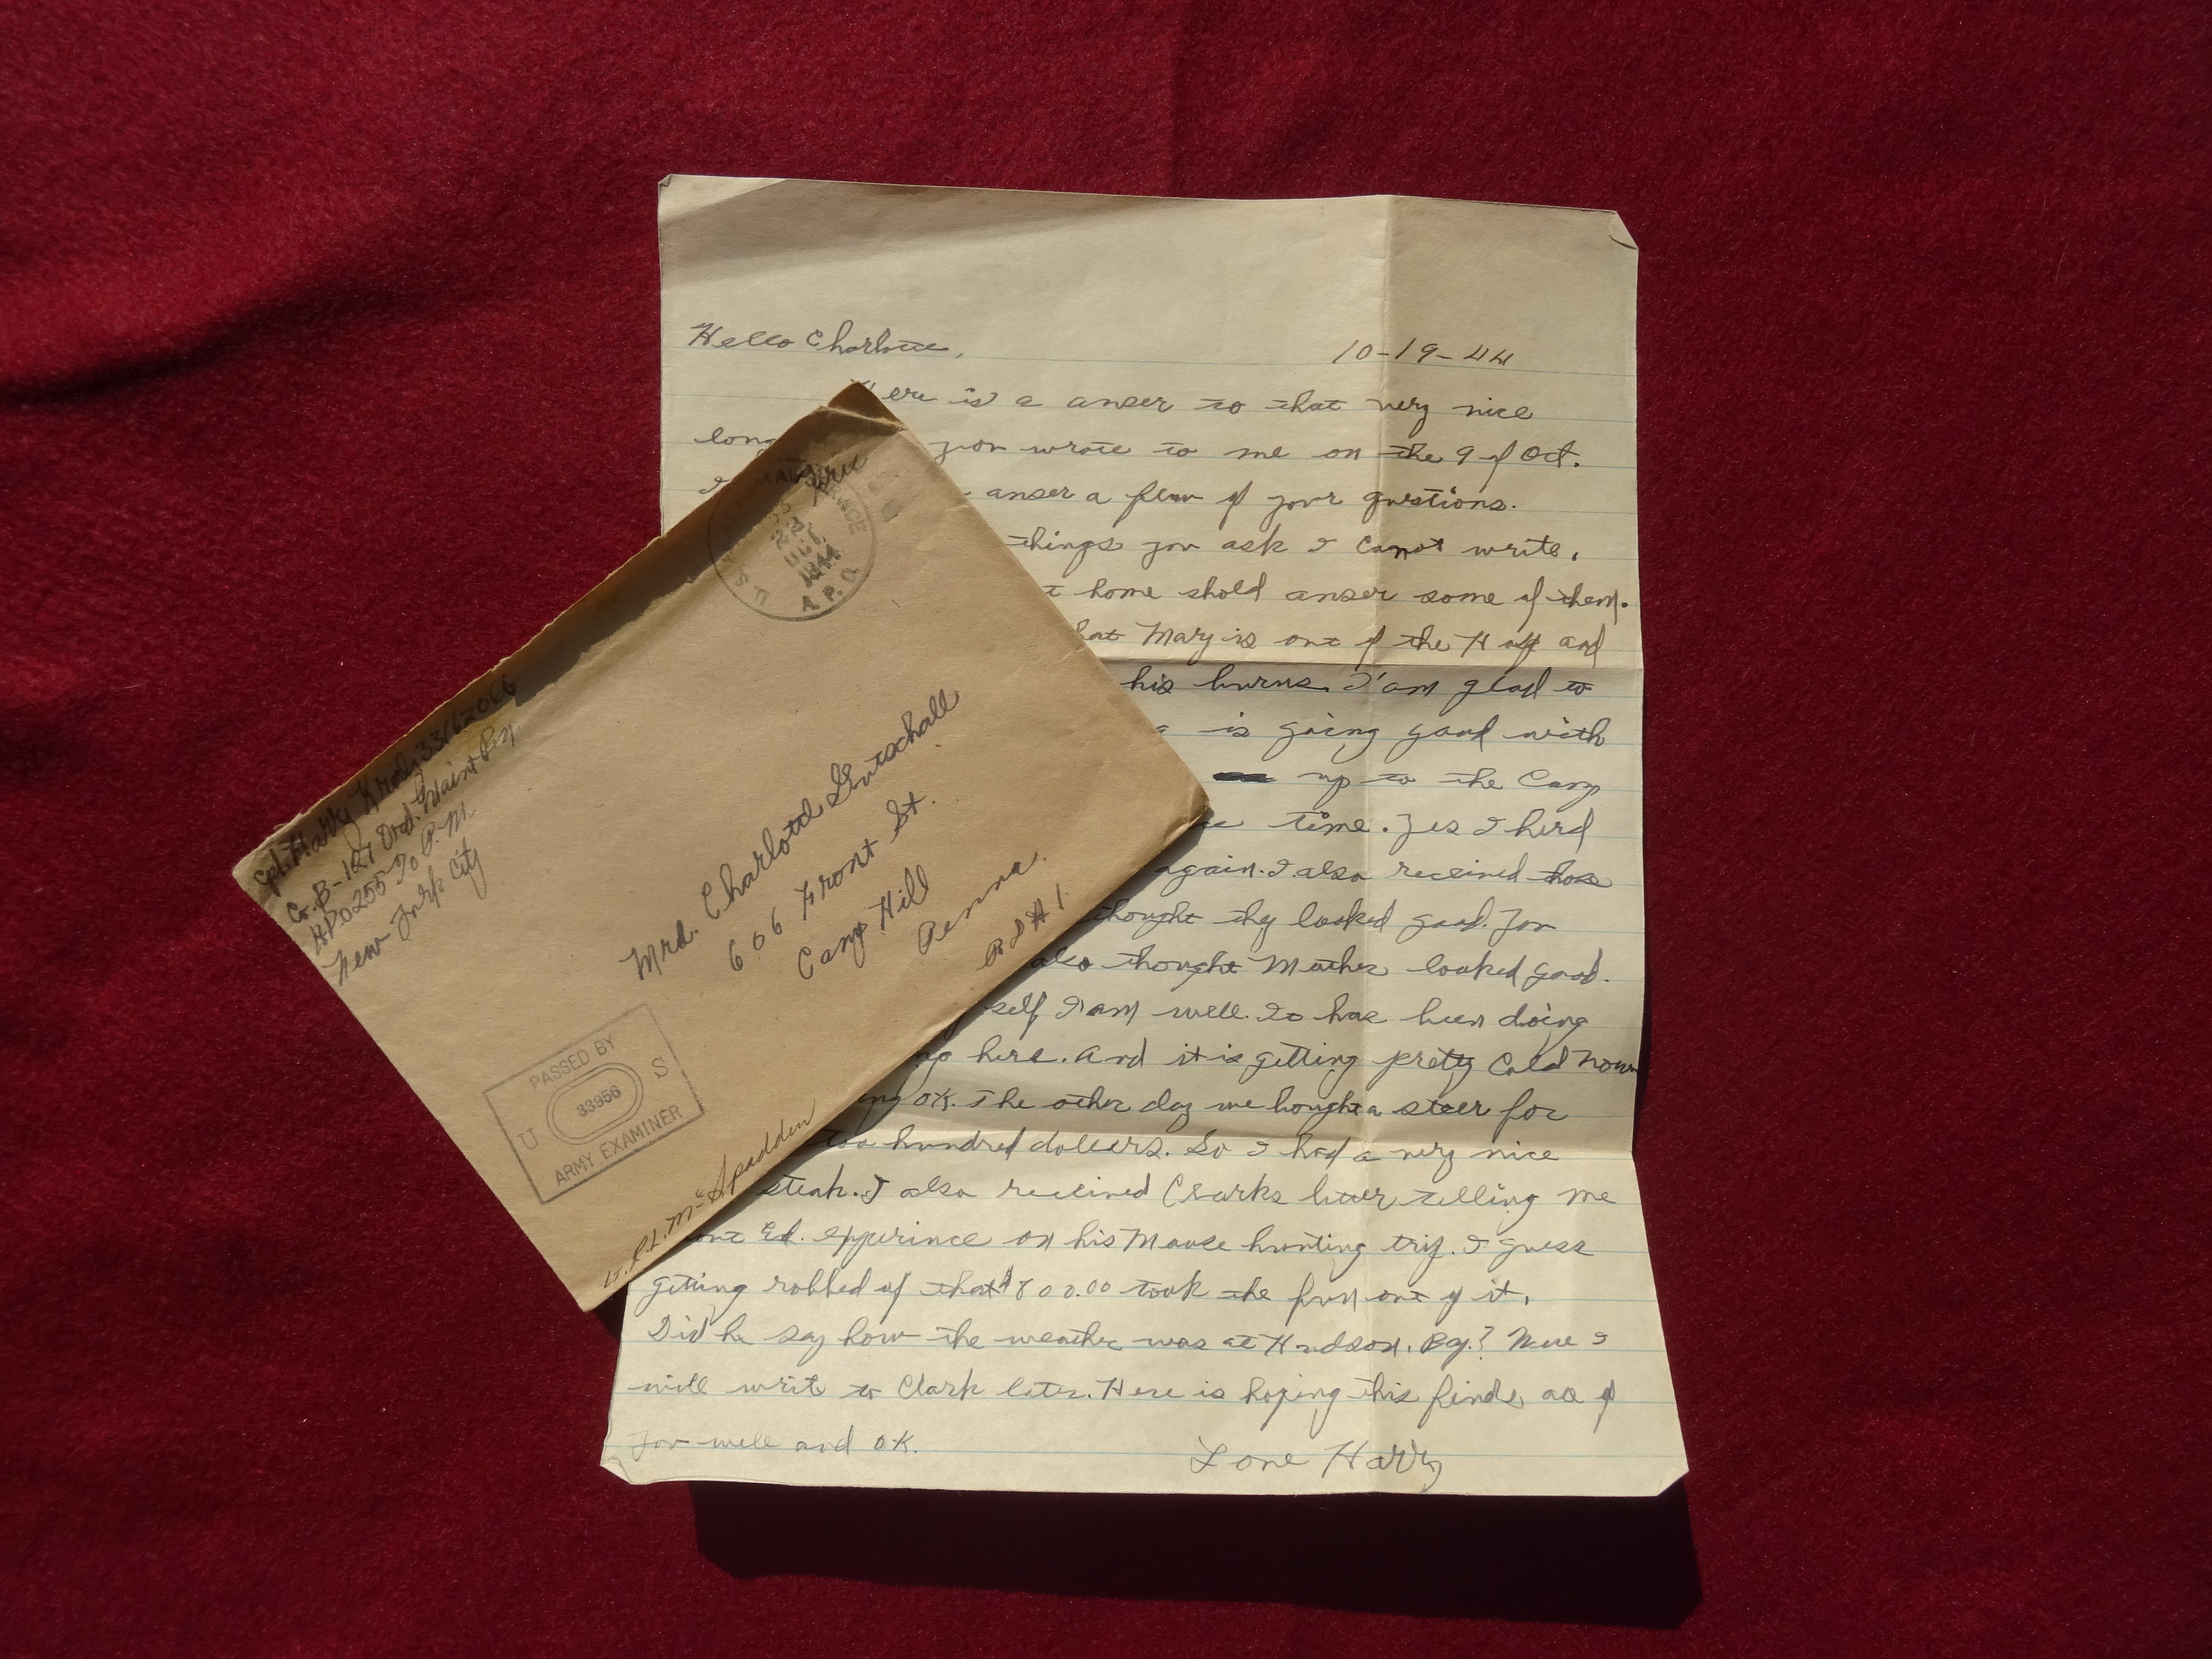 Hello Charlotte,
10-19-44
ere is a anser to that very nice
long you wrote to me on the 9 of Oct.
I anser a few of your qustions.
things you ask I canot write,
t home shold anser some of them.
hat Mary is out of the and
his burns. I'am glad to
is going good with
up to the Camp
time. Yes I herd
again. I also received those
thought they looked good. You
also thought Mother looked good.
self I am well. has been doing
up here. And it is getting pretty Cold Now
ng OK. The other day we bought a steer for
too hundred dollers. So I had a very nice
steak. I also received Clarks letter telling me
out Ed. expperince on his Moose hunting trip. I guess
getting robbed of that $800.00 took the fun out of it.
Did he say how the weather was at Hudson. Bay.? I
will write to Clark later. Here is hoping this finds all of
you well and OK.
Love Harry
Free
U.S. A.P.O.
22
1944
Cpl. Harry
Co. B-127 Ord. Maint Bn
APO 255 % P.M.
New York City
Mrs. Charlotte Gutschall
606 Front St.
Camp Hill
Penna.
RD #1.
PASSED BY
U 33956 S
ARMY EXAMINER
Lt. R.L. McSpadden